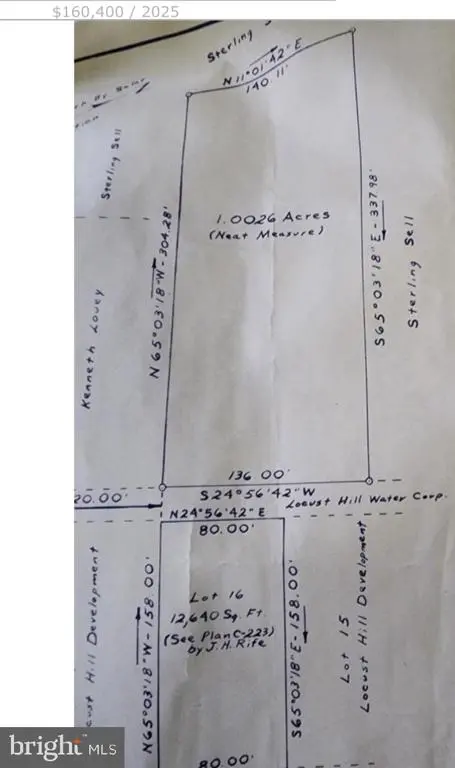 $160,400 / 2025
Sterling
N 11°01'42" E
140.11'
Sterling Sell
1.0026 Acres
(Neat Measure)
N 65°03'18" W - 304.28'
S 65°03'18" E - 337.98'
Sterling Sell
Kenneth Lovey
136.00'
S 24°56'42" W
20.00'
Locust Hill Water Corp.
N 24°56'42" E
80.00'
Lot 16
12,640 Sq. Ft.
(See Plan C-223)
by J.H. Rife
N 65°03'18" W - 158.00'
S 65°03'18" E - 158.00'
Lot 15
Locust Hill Development
cust Hill Development
80.00'
bright MLS